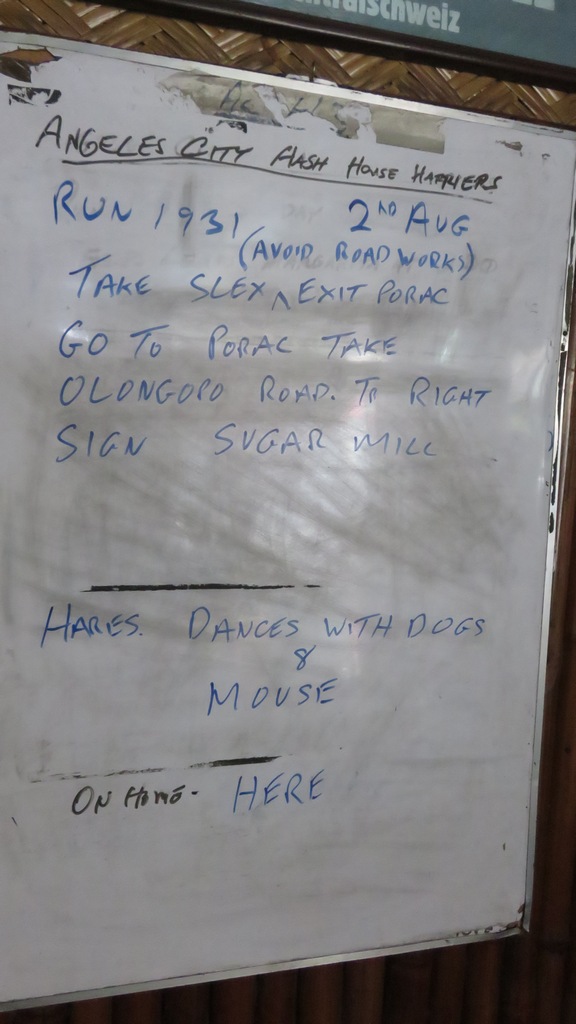 ntralschweiz
ANGELES CITY HASH HOUSE HARRIERS
RUN 1931 2ND AUG
(AVOID ROAD WORKS)
TAKE SLEX ^ EXIT PORAC
GO TO PORAC TAKE
OLONGOPO ROAD. TO RIGHT
SIGN SUGAR MILL
HARES. DANCES WITH DOGS
&
MOUSE
ON HOME - HERE